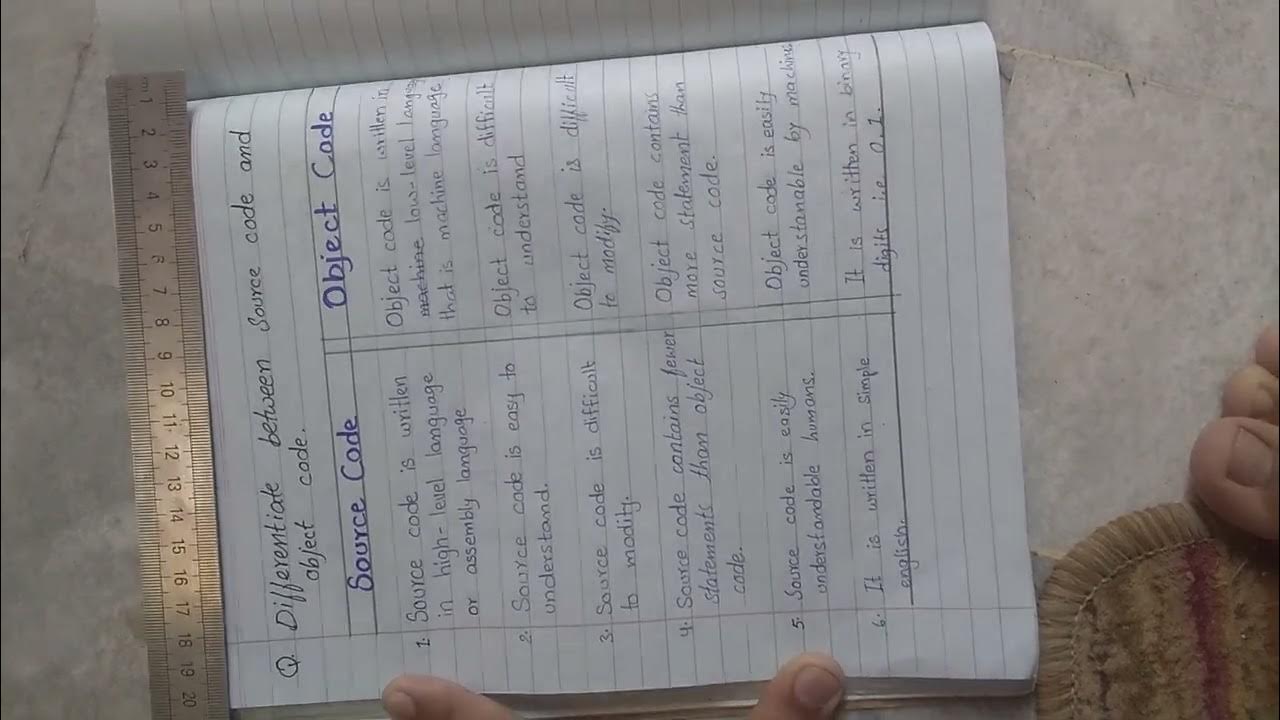 cm 1 2 3 4 5 6 7 8 9 10 11 12 13 14 15 16 17 18 19 20
Q. Differentiate between Source code and
object code.
Source Code
1. Source code is written
in high-level language
or assembly language
2. Source code is easy to
understand.
3. Source code is difficult
to modity.
4. Source code contains fewer
statements than object
code.
5. Source code is easily
understandable humans.
6. It is written in simple
english.
Object Code
Object code is written in
machine low-level languag
that is machine language
Object code is difficult
to understand
Object code is difficult
to modify.
Object code contains
more statement than
source code.
Object code is easily
understanable by machine
It is written in binary
digits i.e 0,1.